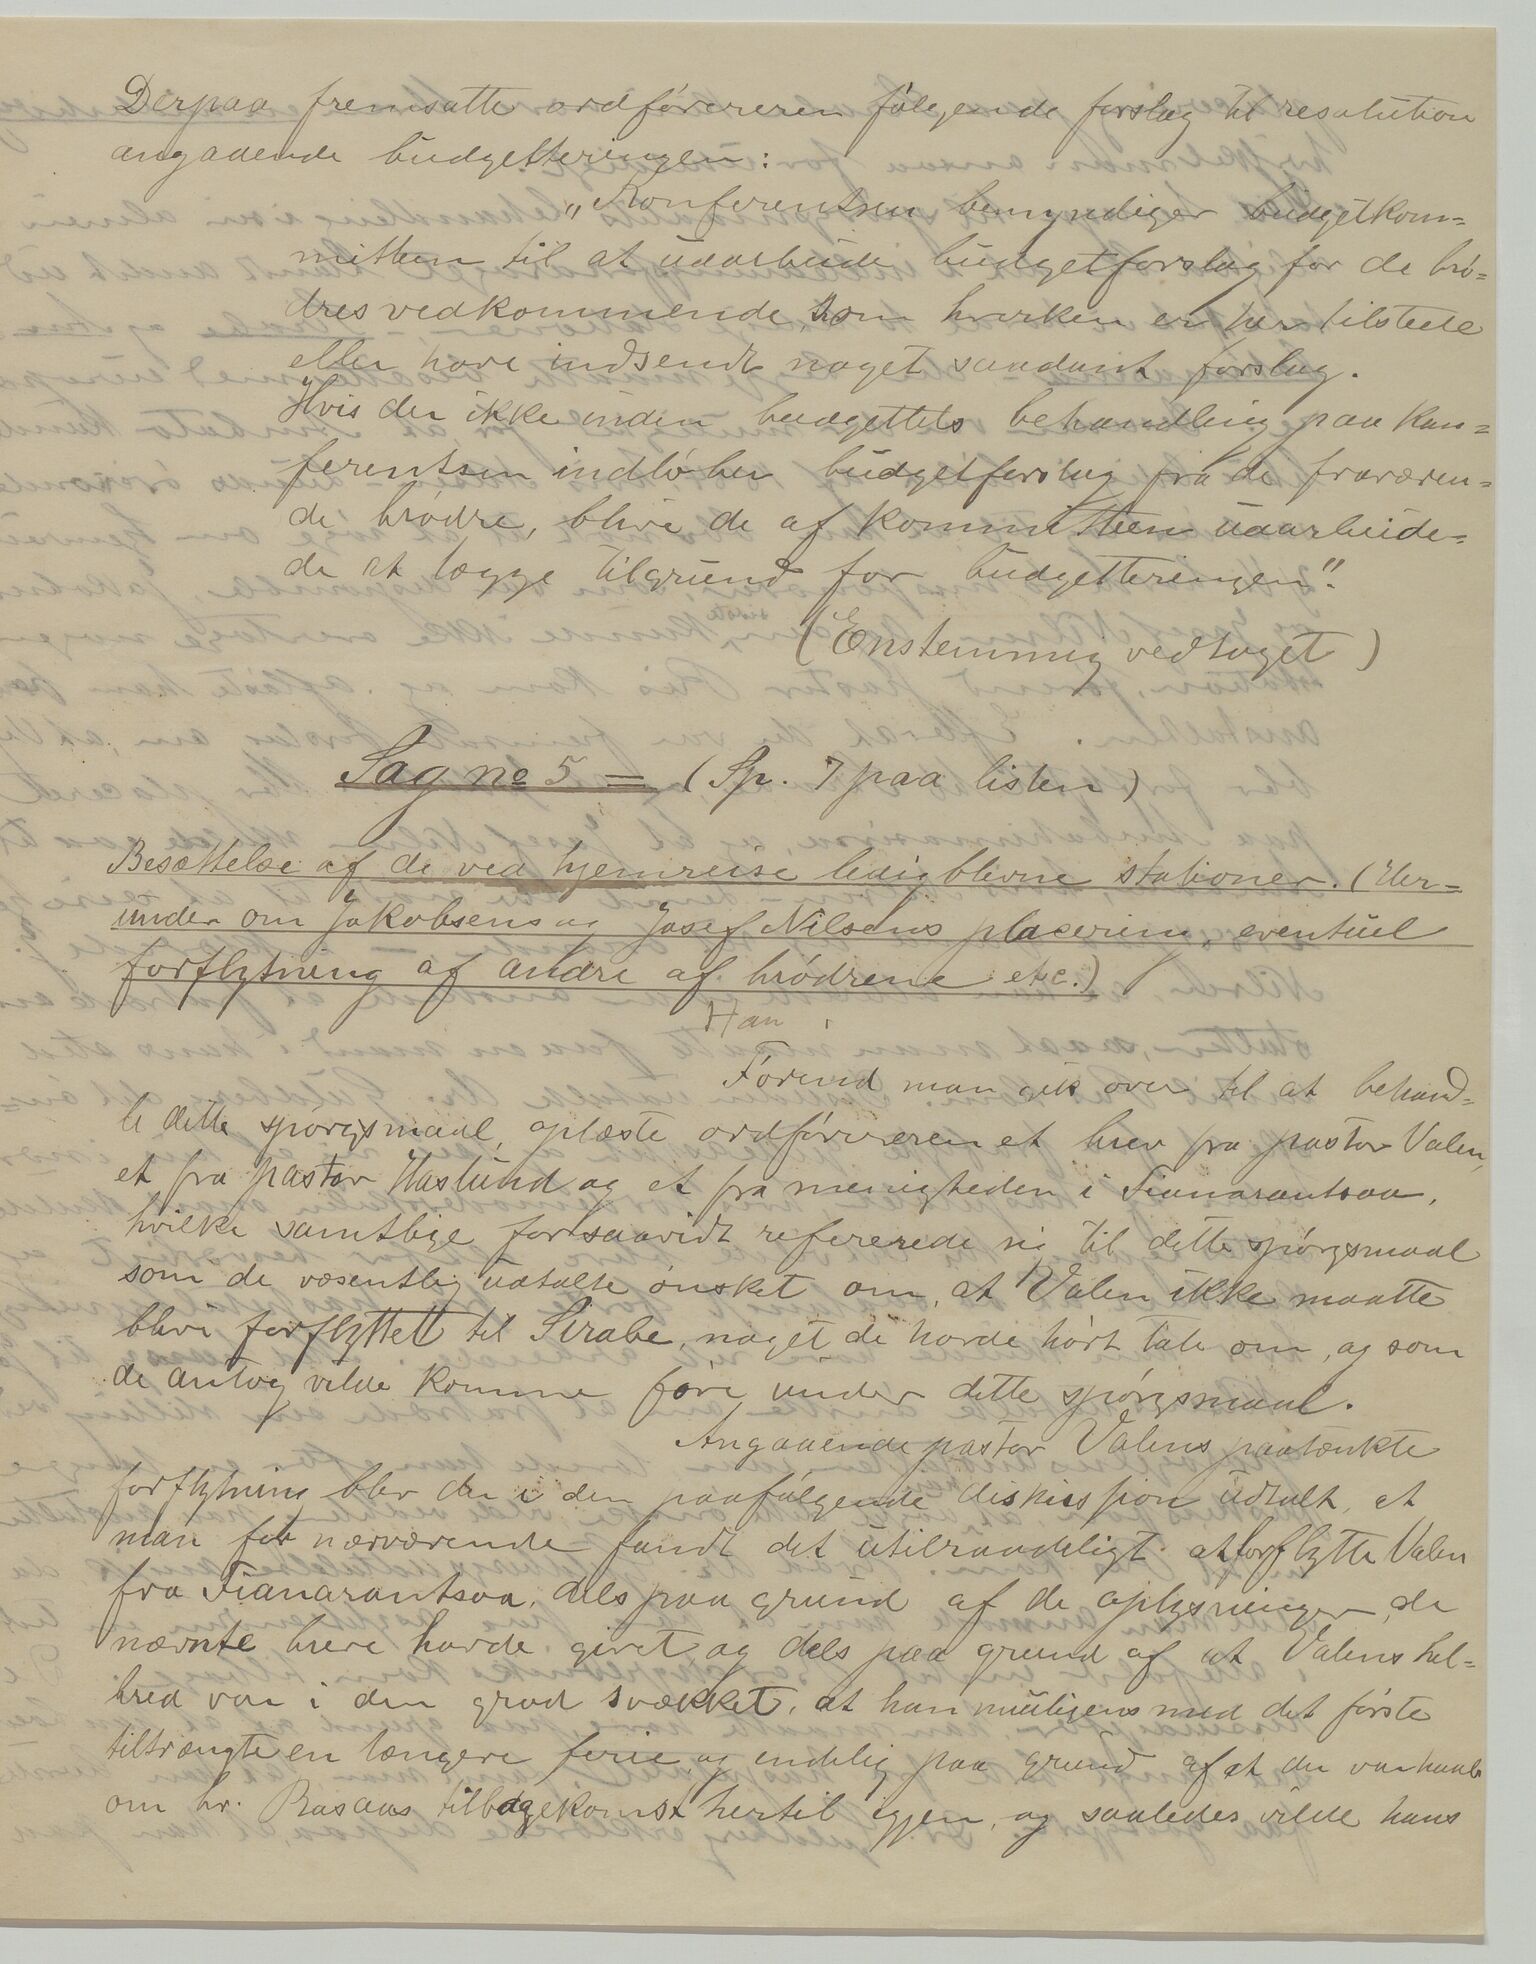 Derpaa fremsatte ordføreren følgende forslag til resolution
angaaende budgetteringen:
„Konferentsen bemyndiger budgetkom=
mitteen til at udarbeide budgetforslag for de brø=
dres vedkommende, som hverken er her tilstede
eller have indsendt noget saadant forslag.
Hvis der ikke inden budgettets behandling paa kon=
ferentsen indløber budgetforslag fra de fraværen=
de brødre, blive de af kommitteen udarbeide=
de at lægge tilgrund for budgetteringen".
(Enstemmig vedtaget)
Sag no 5 = (Sp. 7 paa listen)
Besættelse af de ved hjemreise ledigblivne stationer. (Her=
under om Jakobsens og Josef Nilsens placering, eventuel
forflytning af andre af brødrene etc.)
Han
Førend man gik over til at behand=
le dette spørgsmaal, oplæste ordføreren et brev fra pastor Valen,
et fra pastor Haslund og et fra menigheden i Fianarantsoa,
hvilke samtlige forsaavidt refererede sig til dette spørgsmaal
som de væsentlig udtalte ønsket om, at Valen ikke maatte
blive forflyttet til Sirabe, noget de havde hørt tale om, og som
de antog vilde komme fore under dette spørgsmaal.
Angaaende pastor Valens paatænkte
forflytning blev der i den paafølgende diskussion udtalt, at
man for nærværende fandt det utilraadeligt at forflytte Valen
fra Fianarantsoa, dels paa grund af de oplysninger, de
nævnte breve havde givet, og dels paa grund af at Valens hel=
bred var i den grad svækket, at han muligens med det første
tiltrængte en længere ferie, og endelig paa grund af at der var haab
om br. Rosaas tilbagekomst hertil igjen, og saaledes vilde hans